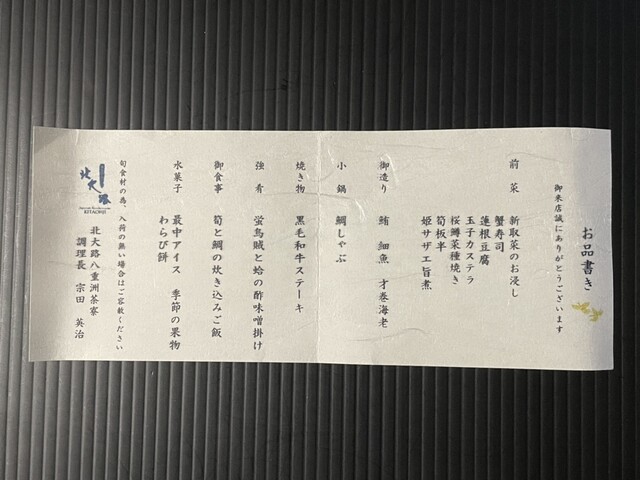 お品書き
御来店誠にありがとうございます
前菜 新取菜のお浸し
蟹寿司
蓮根豆腐
玉子カステラ
桜鱒菜種焼き
筍板羊
姫サザエ旨煮
御造り 鮪 細魚 才巻海老
小鍋 鯛しゃぶ
焼き物 黒毛和牛ステーキ
強肴 蛍烏賊と蛤の酢味噌掛け
御食事 筍と鯛の炊き込みご飯
水菓子 最中アイス 季節の果物
わらび餅
旬食材の為、入荷の無い場合はご容赦ください
北大路八重洲茶寮
調理長 宗田 英治
北大路
KITAOHJI